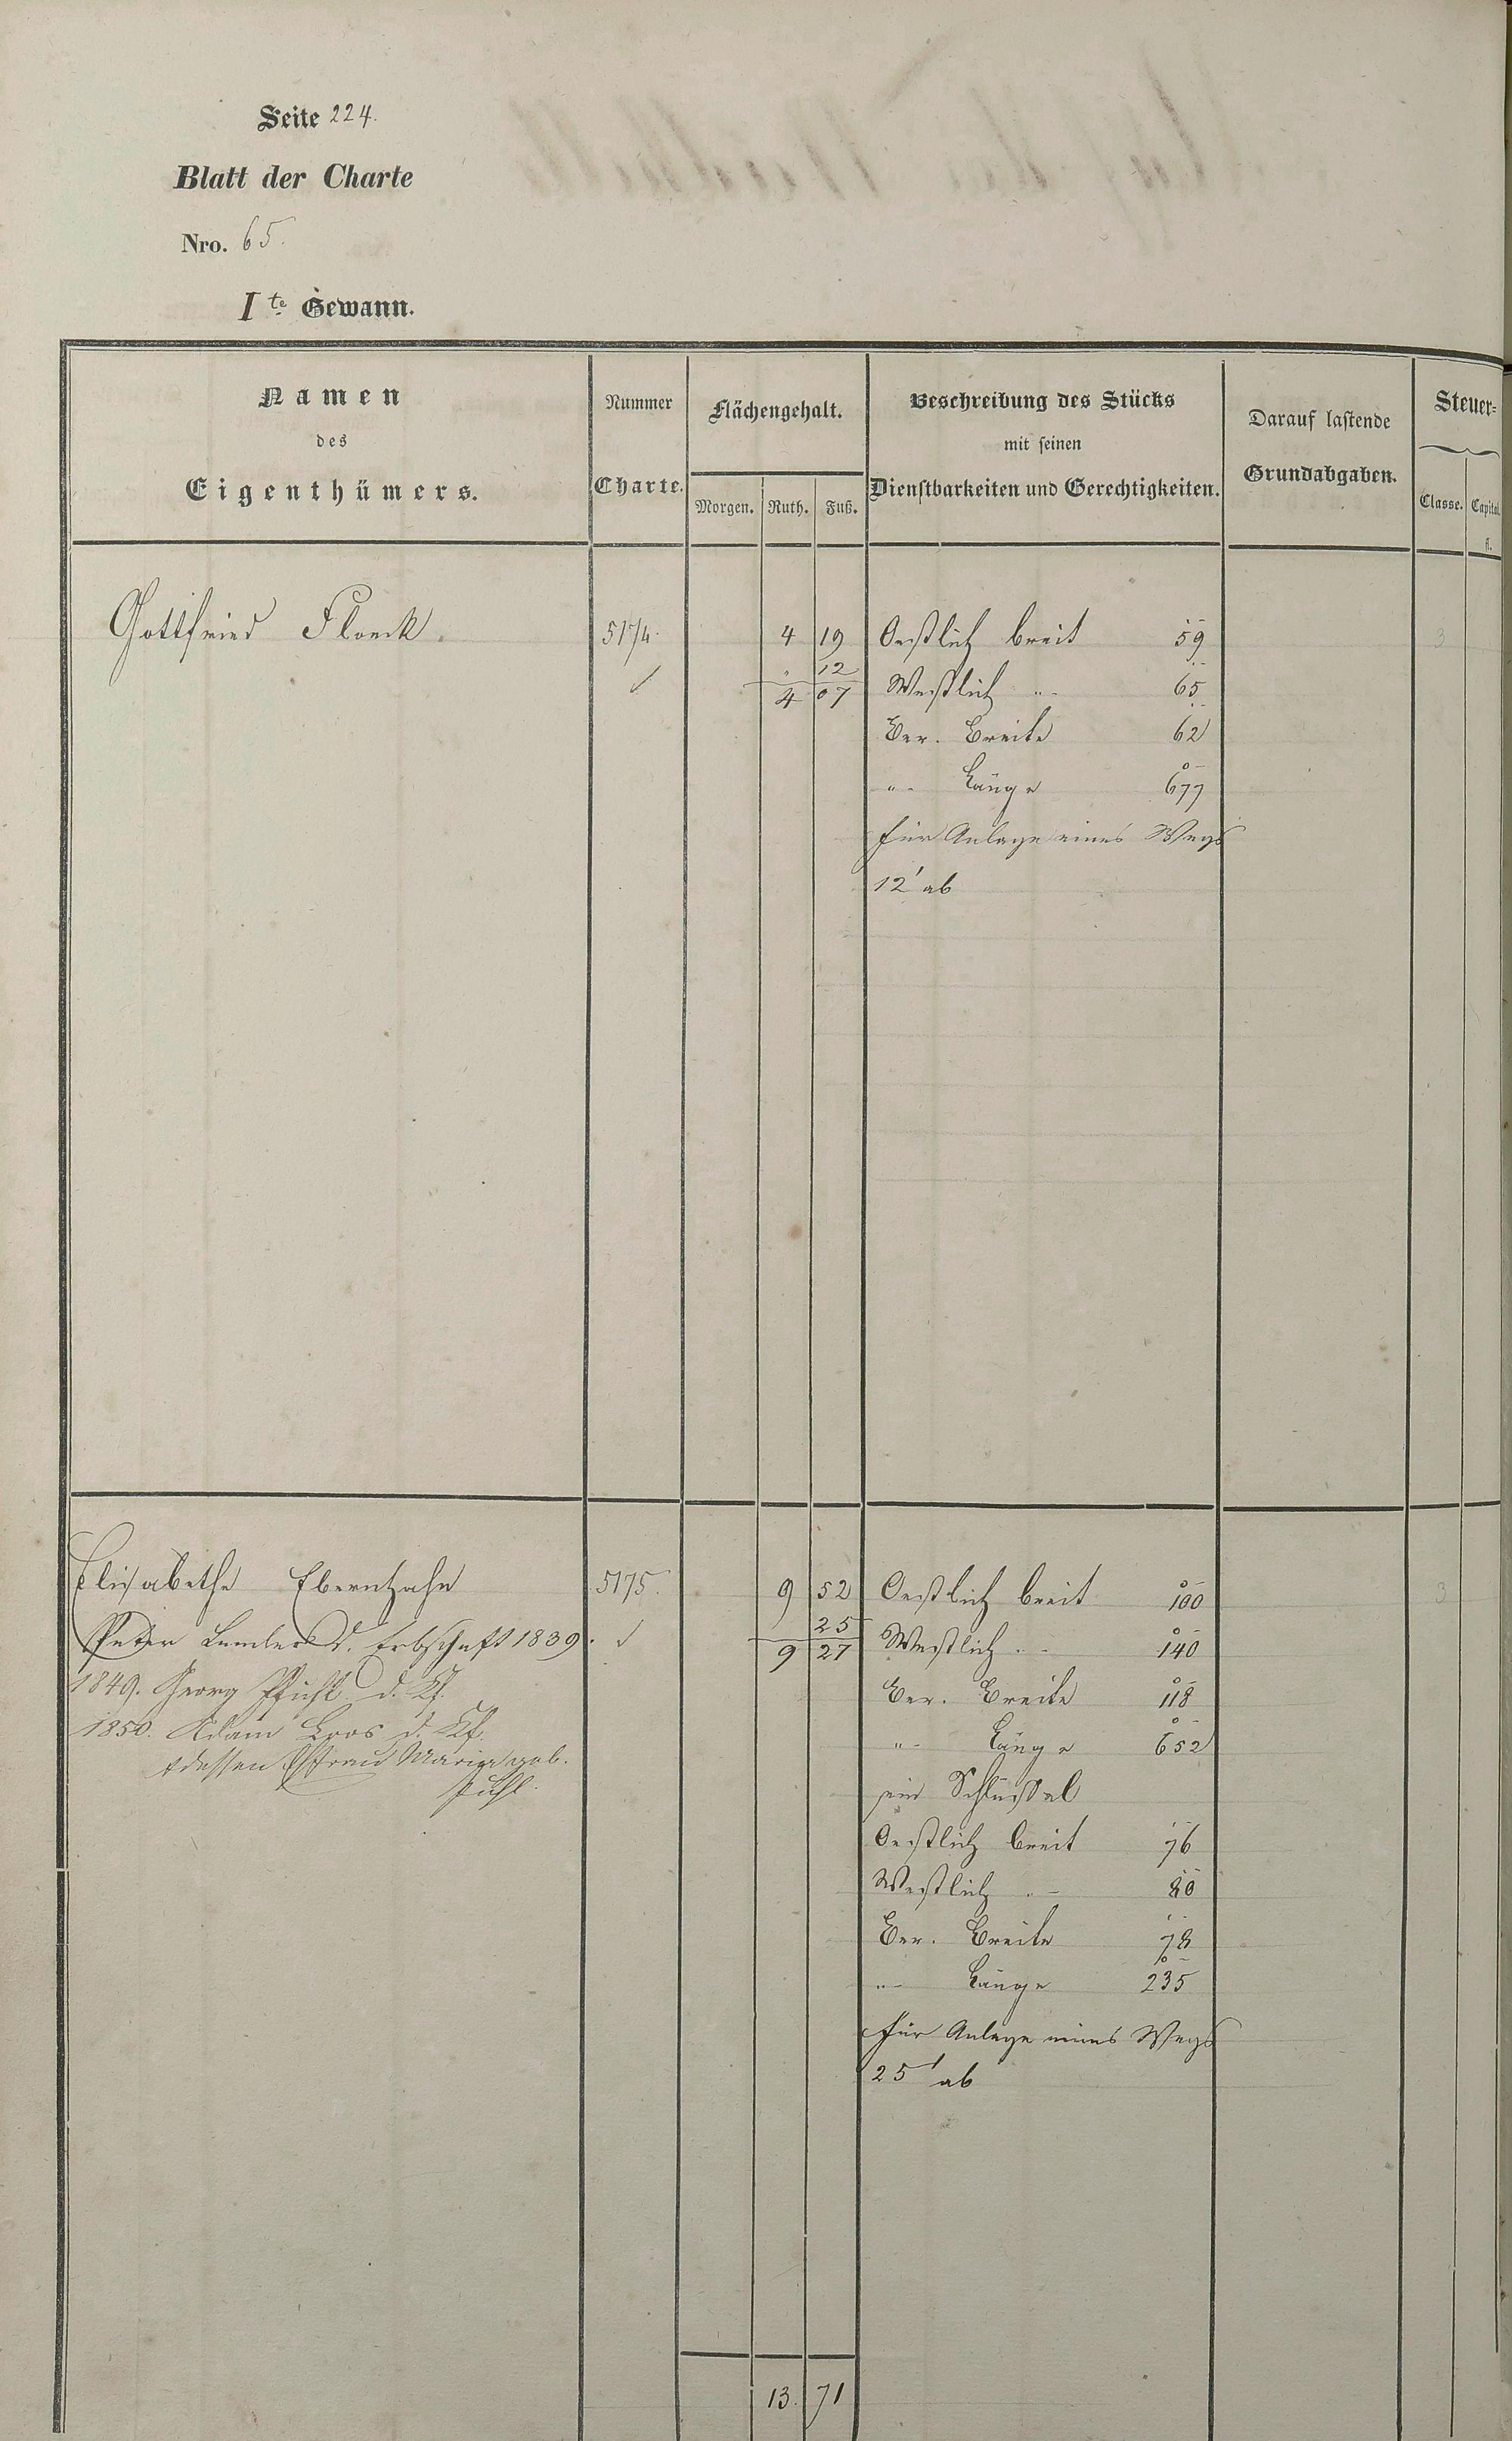 Seite 224.
Blatt der Charte
Nro. 65.
I te Gewann.
Namen
des
Eigenthümers.
Nummer
Charte.
Flächengehalt.
Morgen. Ruth. Fuß.
Beschreibung des Stücks
mit seinen
Dienstbarkeiten und Gerechtigkeiten.
Darauf lastende
Grundabgaben.
Steuer-
Classe. Capital
fl.
Gottfried Floeck. 5174. 4 19 Oestlich breit 59 3
" 12 Westlich " 65
4 07
Ver. Breite 62
" Länge 677
für Anlage eines Wegs
12' ab
Elisabethe Eberntzahn 5175. 9 52 Oestlich breit 100 3
Peter d. Erbschaft 1839. 25 Westlich " 140
9 27
1849. Georg d. Kf. Ver. Breite 118
1850. Adam Loos d. Kf. " Länge 652
dessen Ehfrau Maria geb.
Puhl.
ein Schlüssel
Oestlich breit 76
Westlich " 80
Ver. Breite 78
" Länge 235
für Anlage eines Wegs
25' ab
13. 71